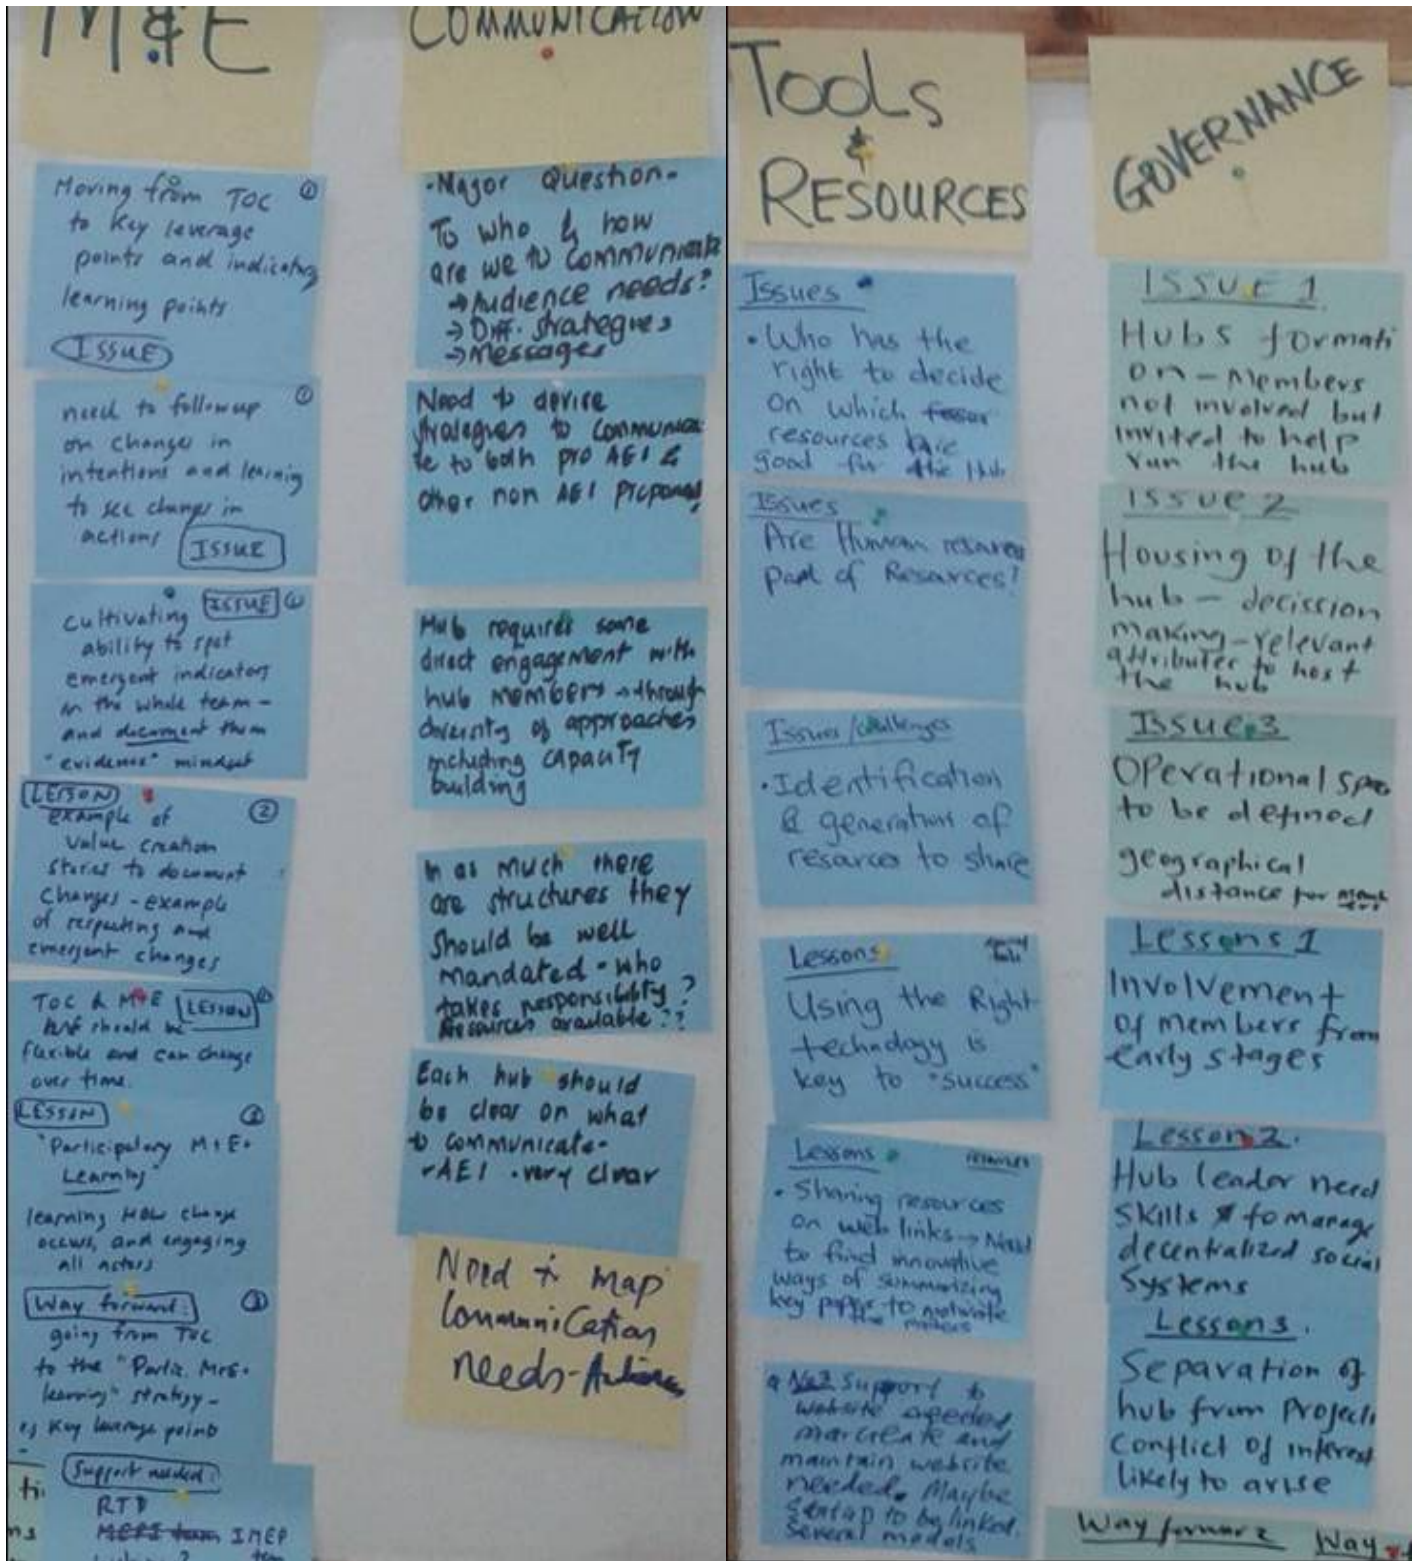 M&E
Moving from TOC ①
to key leverage
points and indicators
learning points
ISSUE
need to followup ①
on changes in
intentions and learning
to see changes in
actions ISSUE
cultivating ISSUE ①
ability to spot
emergent indicators
in the whole team -
and document them
"evidence" mindset
LESSON
example of ②
value creation
stories to document
changes - example
of respecting and
emergent changes
TOC & M+E LESSON
should be
flexible and can change
over time.
LESSON ②
"Participatory M+E+
Learning"
learning HOW change
occurs, and engaging
all actors
Way forward: ③
going from TOC
to the "Partic. M+E+
learning" strategy -
key leverage points
Support needed:
RTP
IMEP
COMMUNICATION
-Major Question-
To who & how
are we to communicate
→Audience needs?
→Diff. strategies
→Messages
Need to device
strategies to communica
te to both pro AEI &
other non AEI
Hub requires some
direct engagement with
hub members → through
diversity of approaches
including capacity
building
In as much there
are structures they
should be well
mandated - who
takes responsibility?
Resources available??
Each hub should
be clear on what
to communicate-
AEI very clear
Need to map
Communication
needs-
Tools
&
RESOURCES
Issues
• Who has the
right to decide
on which
resources are
good for the Hub
Issues
Are Human resources
part of Resources?
Issues/challenges
• Identification
& generation of
resources to share
Lessons
Using the Right
technology is
key to "success"
Lessons
• Sharing resources
on web links → Need
to find innovative
ways of summarizing
key papers to motivate
the
Support to
website
create and
maintain website
needed. Maybe
to be linked
several models
GOVERNANCE
ISSUE 1
Hubs formati
on - Members
not involved but
invited to help
run the hub
ISSUE 2
Housing of the
hub - decission
making - relevant
attributes to host
the hub
ISSUE 3
Operational
to be defined
geographical
distance for
Lessons 1
Involvement
of members from
early stages
Lesson 2.
Hub leader need
skills to manage
decentralized social
Systems
Lesson 3.
Separation of
hub from Project:
Conflict of interest
likely to arise
Way forward
Way